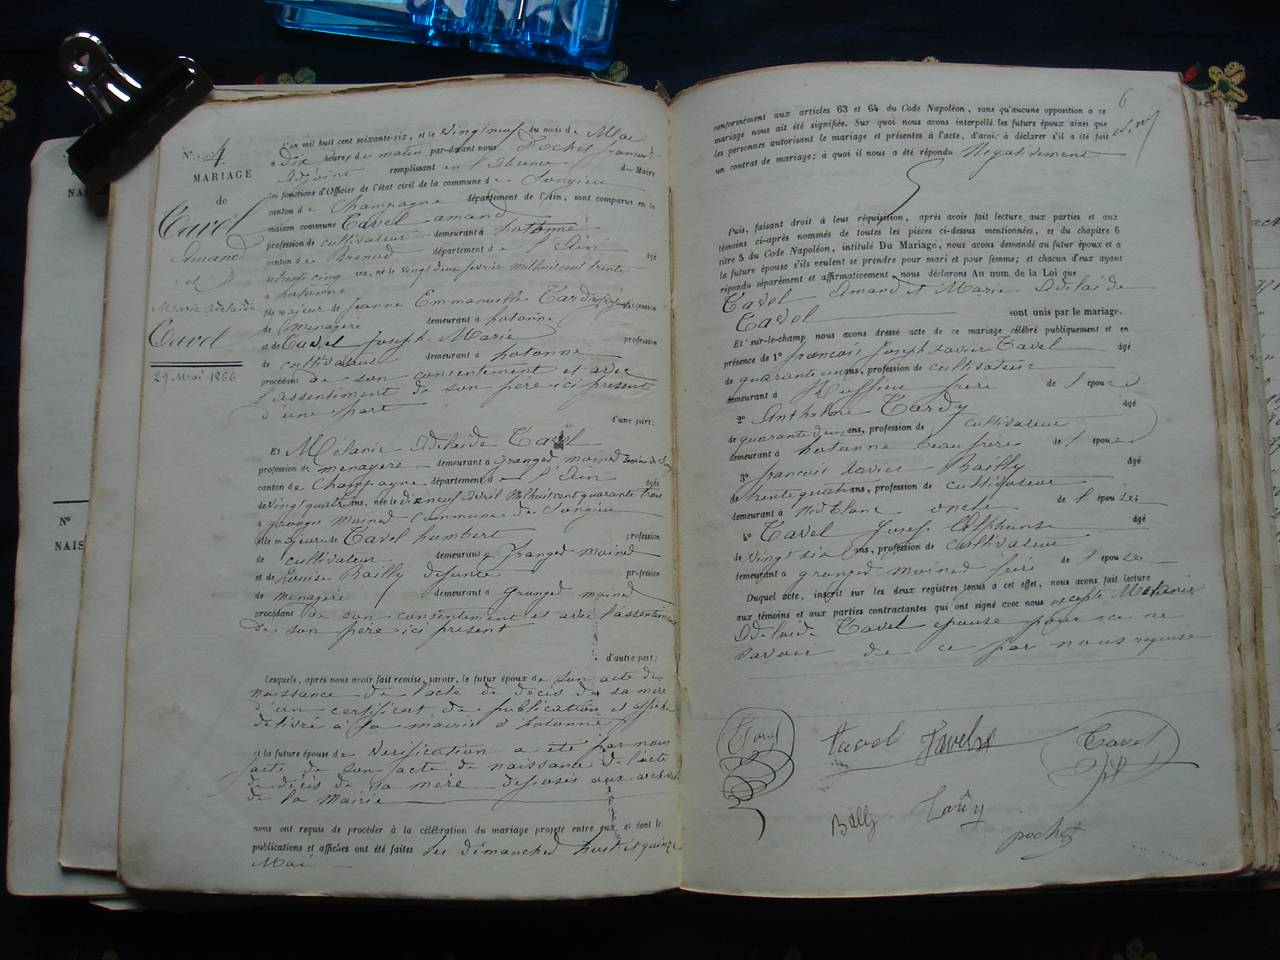 NA
N°
NAIS
N° 4.
MARIAGE
de
Tavel
Amand
et
Marie Adelaide
Tavel
29 Mai 1866
L'an mil huit cent soixante-six, et le vingt neuf du mois de Mai
à Dix heures du matin par-devant nous Pochet francois
Adjoint remplissant en l'absence du Maire
les fonctions d'Officier de l'état civil de la commune de Songieu
canton de Champagne département de l'Ain, sont comparus en la
maison commune Tavel amand
profession de cultivateur demeurant à hotonne
canton de Brenod département de l'Ain âgé
de trente cinq ans, né le vingt deux fevrier mil huit cent trente
à hotonne
fils majeur de Jeanne Emmanuelle Tardy profession
de menagere demeurant à hotonne
et de Tavel Joseph Marie profession
de cultivateur demeurant à hotonne
procédant de son consentement et avec
l'assentiment de son père ici present
d'une part
d'une part;
Et Mélanie Adelaide Tavel
profession de menagere demeurant à granges moined
canton de Champagne département de l'Ain âgée
de vingt quatre ans, née le dix neuf Avril mil huit cent quarante trois
à granges moined Commune de Songieu
fille majeure de Tavel humbert profession
de cultivateur demeurant à Granged moined
et de Louise Bailly defunte profession
de menagere demeurant à Granged moined
procédant de son consentement et avec l'assentiment
de son père ici present
d'autre part;
Lesquels, après nous avoir fait remise, savoir, le futur époux de son acte de
naissance de l'acte de décés de sa mère
d'un certificat de publication et affiche
délivré à la mairie d'hotonne
et la future épouse de Verification a été par nous
faite de son acte de naissance de l'acte
de décés de sa mère deposés aux archives
de la Mairie
nous ont requis de procéder à la célébration du mariage projeté entre eux et dont le
publications et affiches ont été faites les dimanches huit et quinze
Mai
6
conformément aux articles 63 et 64 du Code Napoléon, sans qu'aucune opposition à ce
mariage nous ait été signifiée. Sur quoi nous avons interpellé les futurs époux ainsi que
les personnes autorisant le mariage et présentes à l'acte, d'avoir à déclarer s'il a été fait
un contrat de mariage; à quoi il nous a été répondu Négativement
Puis, faisant droit à leur réquisition, après avoir fait lecture aux parties et aux
témoins ci-après nommés de toutes les pièces ci-dessus mentionnées, et du chapitre 6
titre 5 du Code Napoléon, intitulé Du Mariage, nous avons demandé au futur époux et à
la future épouse s'ils veulent se prendre pour mari et pour femme; et chacun d'eux ayant
répondu séparément et affirmativement, nous déclarons Au nom de la Loi que
Tavel Amand et Marie Adelaide
Tavel sont unis par le mariage.
Et sur-le-champ nous avons dressé acte de ce mariage célébré publiquement et en
présence de 1° francois Joseph xavier Tavel âgé
de quarante un ans, profession de cultivateur
demeurant à Ruffieu frere de l'époux
2° Anthelme Tardy âgé
de quarante deux ans, profession de cultivateur
demeurant à hotonne beau frere de l'époux
3° francois xavier Bailly âgé
de trente quatre ans, profession de cultivateur
demeurant à Nid blanc oncle de l'épouse
4° Tavel Josef Alphonse âgé
de vingt six ans, profession de cultivateur
demeurant à granges moined frere de l'épouse
Duquel acte, inscrit sur les deux registres tenus à cet effet, nous avons fait lecture
aux témoins et aux parties contractantes qui ont signé avec nous excepté Mélanie
Adelaide Tavel epouse pour ce ne
savoir de ce par nous requise
Tavel tavel Tavel Tavel
Bailly Tardy pochet